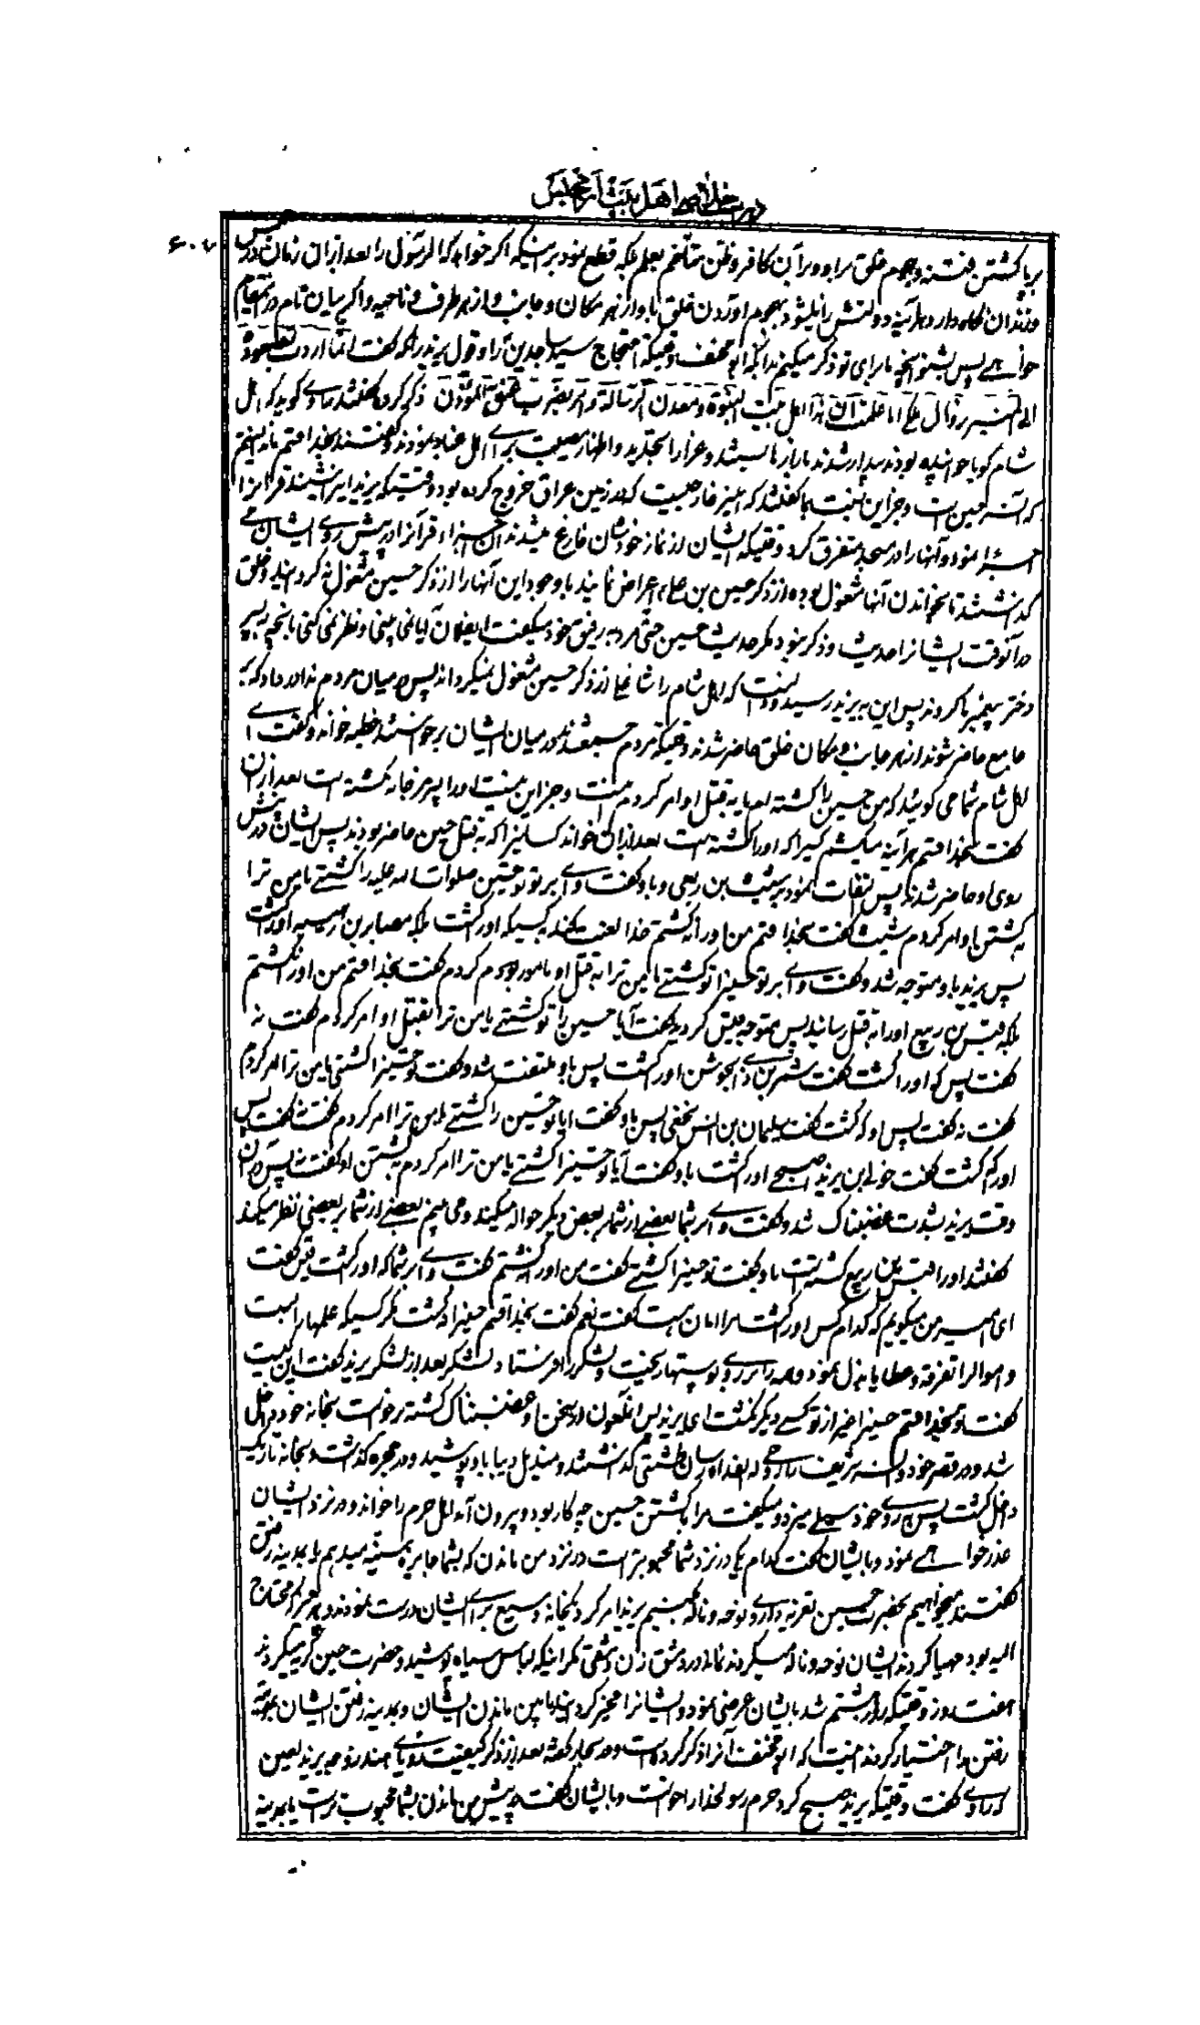 ۶۰۷
بر پا گشتن فتنه و هجوم خلق مر او و بر آن کافر و ظن متاخم بعلم بلکه قطع نمود بر اینکه اگر خواهد که آل رسول را بعد از آن زمان در حبس
و زندان نگاه دارد هر آینه دولتش زایل شود بهجوم آوردن خلق باو از هر مکان و جانب و از هر طرف و ناحیه و اگر بیان تام در این مقام
خواهی پس بشنو آنچه ما برای تو ذکر میکنیم بدانکه ابو مخنف وقتیکه احتجاج سید ساجدین را و قول یزید را که گفت انما اردت بصعوده
المنبر زوال ملکی اما علمت ان هذا اهل بیت النبوة و معدن الرسالة و ذکر کرد گفته راوی گوید که اهل
شام گویا خوابیده بودند بیدار شدند بازارها بستند و عزا را تجدید و اظهار مصیبت برای آل عبا نمودند و گفتند بخدا قسم ما ندانستیم
که این سر حسین است و جز این نیست ما گفتند که این سر خارجیست که در زمین عراق خروج کرده بود وقتیکه یزید این را شنید قرآن را
جزء جزء نموده و آنها را در مسجد متفرق کرد وقتیکه ایشان از نماز خودشان فارغ میشدند آن اجزاء قرآن را در پیش روی ایشان می
گذاشتند تا بخواندن آنها مشغول بوده از ذکر حسین بن علی اعراض نمایند با وجود این آنها را از ذکر حسین مشغول نه کرد و خلق
در آنوقت ایشان را حدیث و ذکر نبود مگر حدیث حسین حتی مرد به رفیق خود میگفت ای فلان آیا نمی بینی و نظر نمی کنی بآنچه به پسر
دختر پیغمبر ما کردند پس این به یزید رسید و دانست که اهل شام را شاغلی از ذکر حسین مشغول نمیگرداند پس در میان مردم ندا در داد که به
جامع حاضر شوند از هر جانب و مکان خلق حاضر شدند وقتیکه مردم جمع شدند در میان ایشان برخواست خطبه خواند و گفت ای
اهل شام شما می گوئید که من حسین را کشته ام یا به قتل او امر کردم و جز این نیست او را پسر مرجانه کشته است بعد از آن
گفت بخدا قسم هر آینه میکشم کسی را که او را کشته است بعد از آن خواند کسانیرا که به قتل حسین حاضر بودند پس ایشان در پیش
روی او حاضر شدند پس التفات نمود به شبث بن ربعی و باو گفت وای بر تو تو حسین صلوات الله علیه را کشتی یا من ترا
به کشتن او امر کردم شبث گفت بخدا قسم من او را نکشتم خدا لعنت کند کسیکه او را کشت بلکه مصابر بن رهیبه او را کشت
پس یزید باو متوجه شد و گفت وای بر تو حسین را تو کشتی یا من ترا به قتل او مامور کردم گفت بخدا قسم من او را نکشتم
بلکه قیس بن ربیع او را به قتل رسانید پس متوجه قیس گردید گفت آیا حسین را تو کشتی یا من ترا بقتل او امر کردم گفت نه
گفت پس که او را کشت گفت شمر بن ذی الجوشن او را کشت پس باو ملتفت شد و گفت تو حسین را کشتی یا من ترا امر کردم
گفت نه گفت پس او را که کشت گفت سلیمان بن انس نخعی پس باو گفت آیا تو حسین را کشتی یا من ترا امر کردم گفت نه گفت پس
او را که کشت گفت خولی ابن یزید اصبحی او را کشت باو گفت آیا تو حسین را کشتی یا من ترا امر کردم به کشتن او گفت نه پس در آن
وقت یزید بشدت غضبناک شد و گفت وای بر شما بعضی از شما بر بعض دیگر حواله میکنید و می بینم بعضی از شما بر بعضی نظر میکنید
گفتند او را قیس بن ربیع کشته است باو گفت تو حسین را کشتی گفت من او را نکشتم گفت وای بر شما که او را کشت قیس گفت
ای امیر من میگویم که کدام کس او را کشت مرا امان هست گفت نعم گفت بخدا قسم حسین را نکشت مگر کسیکه علمها را بست
و اموالرا تفرقه و عطایا بذل نمود و لشکر را فرستاد لشکر بعد از لشکر یزید گفت این کیست
گفت تو بخدا قسم حسین را غیر از تو کسی دیگر نکشت ای یزید پس آن ملعون از سخن او غضبناک گشته برخواست بخانه خود داخل
شد و در قصر خود و سر شریف را در طشتی گذاشتند و مندیل دیبا باو پوشید و در حجره گذاشت و بخانه تاریک
داخل گشت پس بر روی خود سیلی میزد و میگفت مرا با کشتن حسین چه کار بود و بیرون آمد اهل حرم را خواند و در نزد ایشان
عذر خواهی نمود و بایشان گفت کدام یک در نزد شما محبوبتر است در نزد من ماندن که بشما جایزه سنیه میدهم یا بمدینه رفتن
گفتند میخواهیم بحضرت حسین تعزیه داری و نوحه و ناله کنیم یزید امر کرد که خانه وسیع برای ایشان درست نمودند و هر چیز که محتاج
الیه بود مهیا کردند ایشان نوحه و ناله میکردند نماند در دمشق زن دمشقی مگر اینکه لباس سیاه پوشید و حضرت حسین گریه میکردند
هفت روز وقتیکه روز هشتم شد بایشان عرضی نمود و ایشان را مخیر کرد مابین ماندن ایشان و بمدینه رفتن ایشان بمدینه
رفتن را اختیار کردند اینست که ابو مخنف آنرا ذکر کرده است و در بحار گفته بعد از ذکر کیفیت رؤیای هند زوجه یزید لعین
که راوی گفت وقتیکه یزید صبح کرد حرم رسولخدا را خواست و بایشان گفت در پیش من ماندن بشما محبوب تر است یا بمدینه